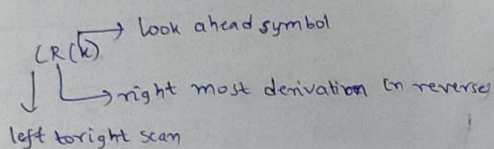 look ahead symbol
LR(k)
right most derivation in reverse
left to right scan